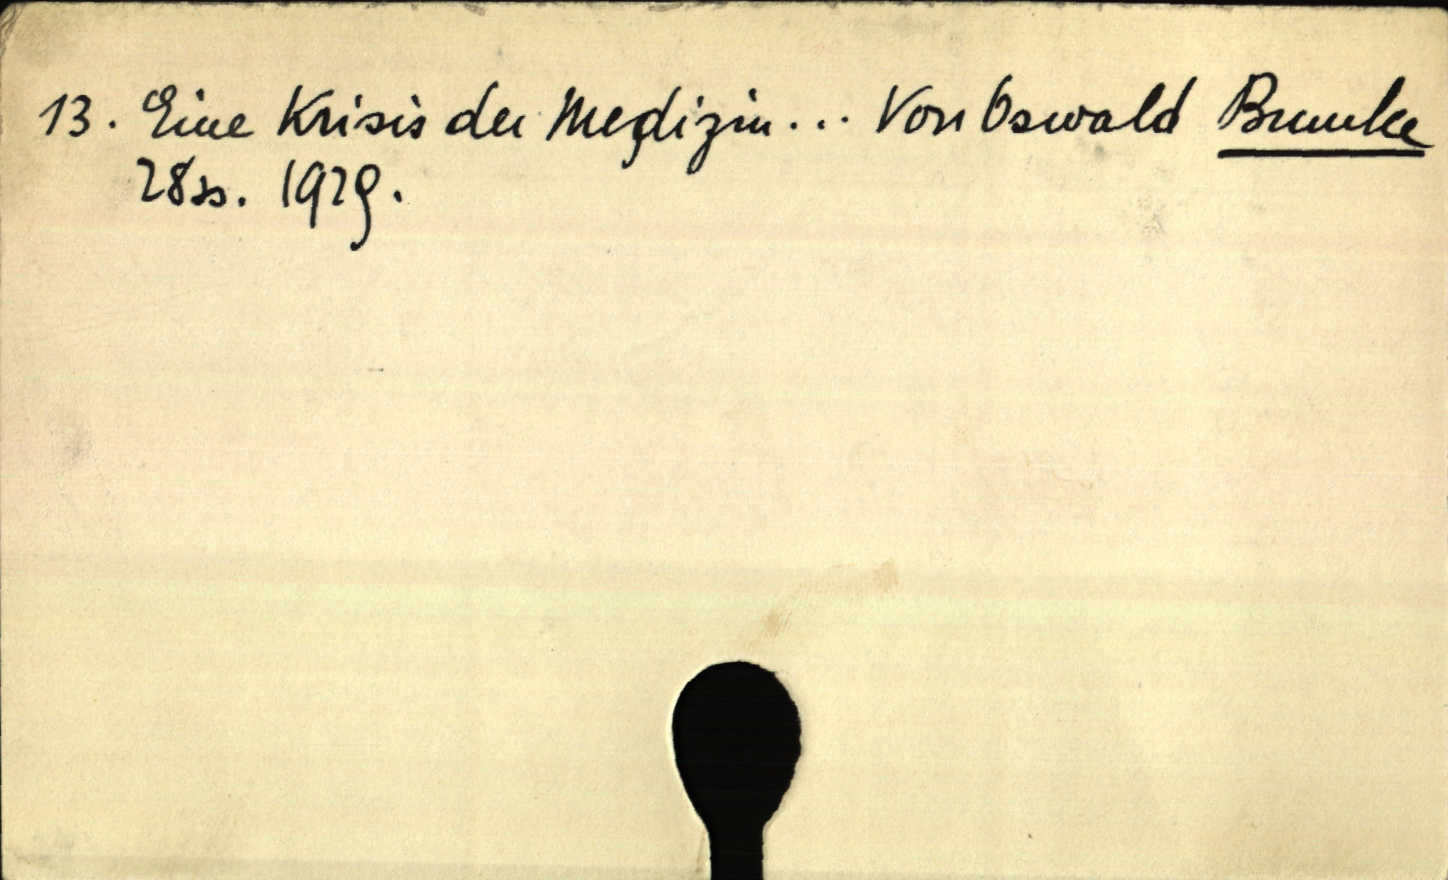 13. Eine Krisis der Medizin... Von Oswald Bumke
28 ss. 1929.